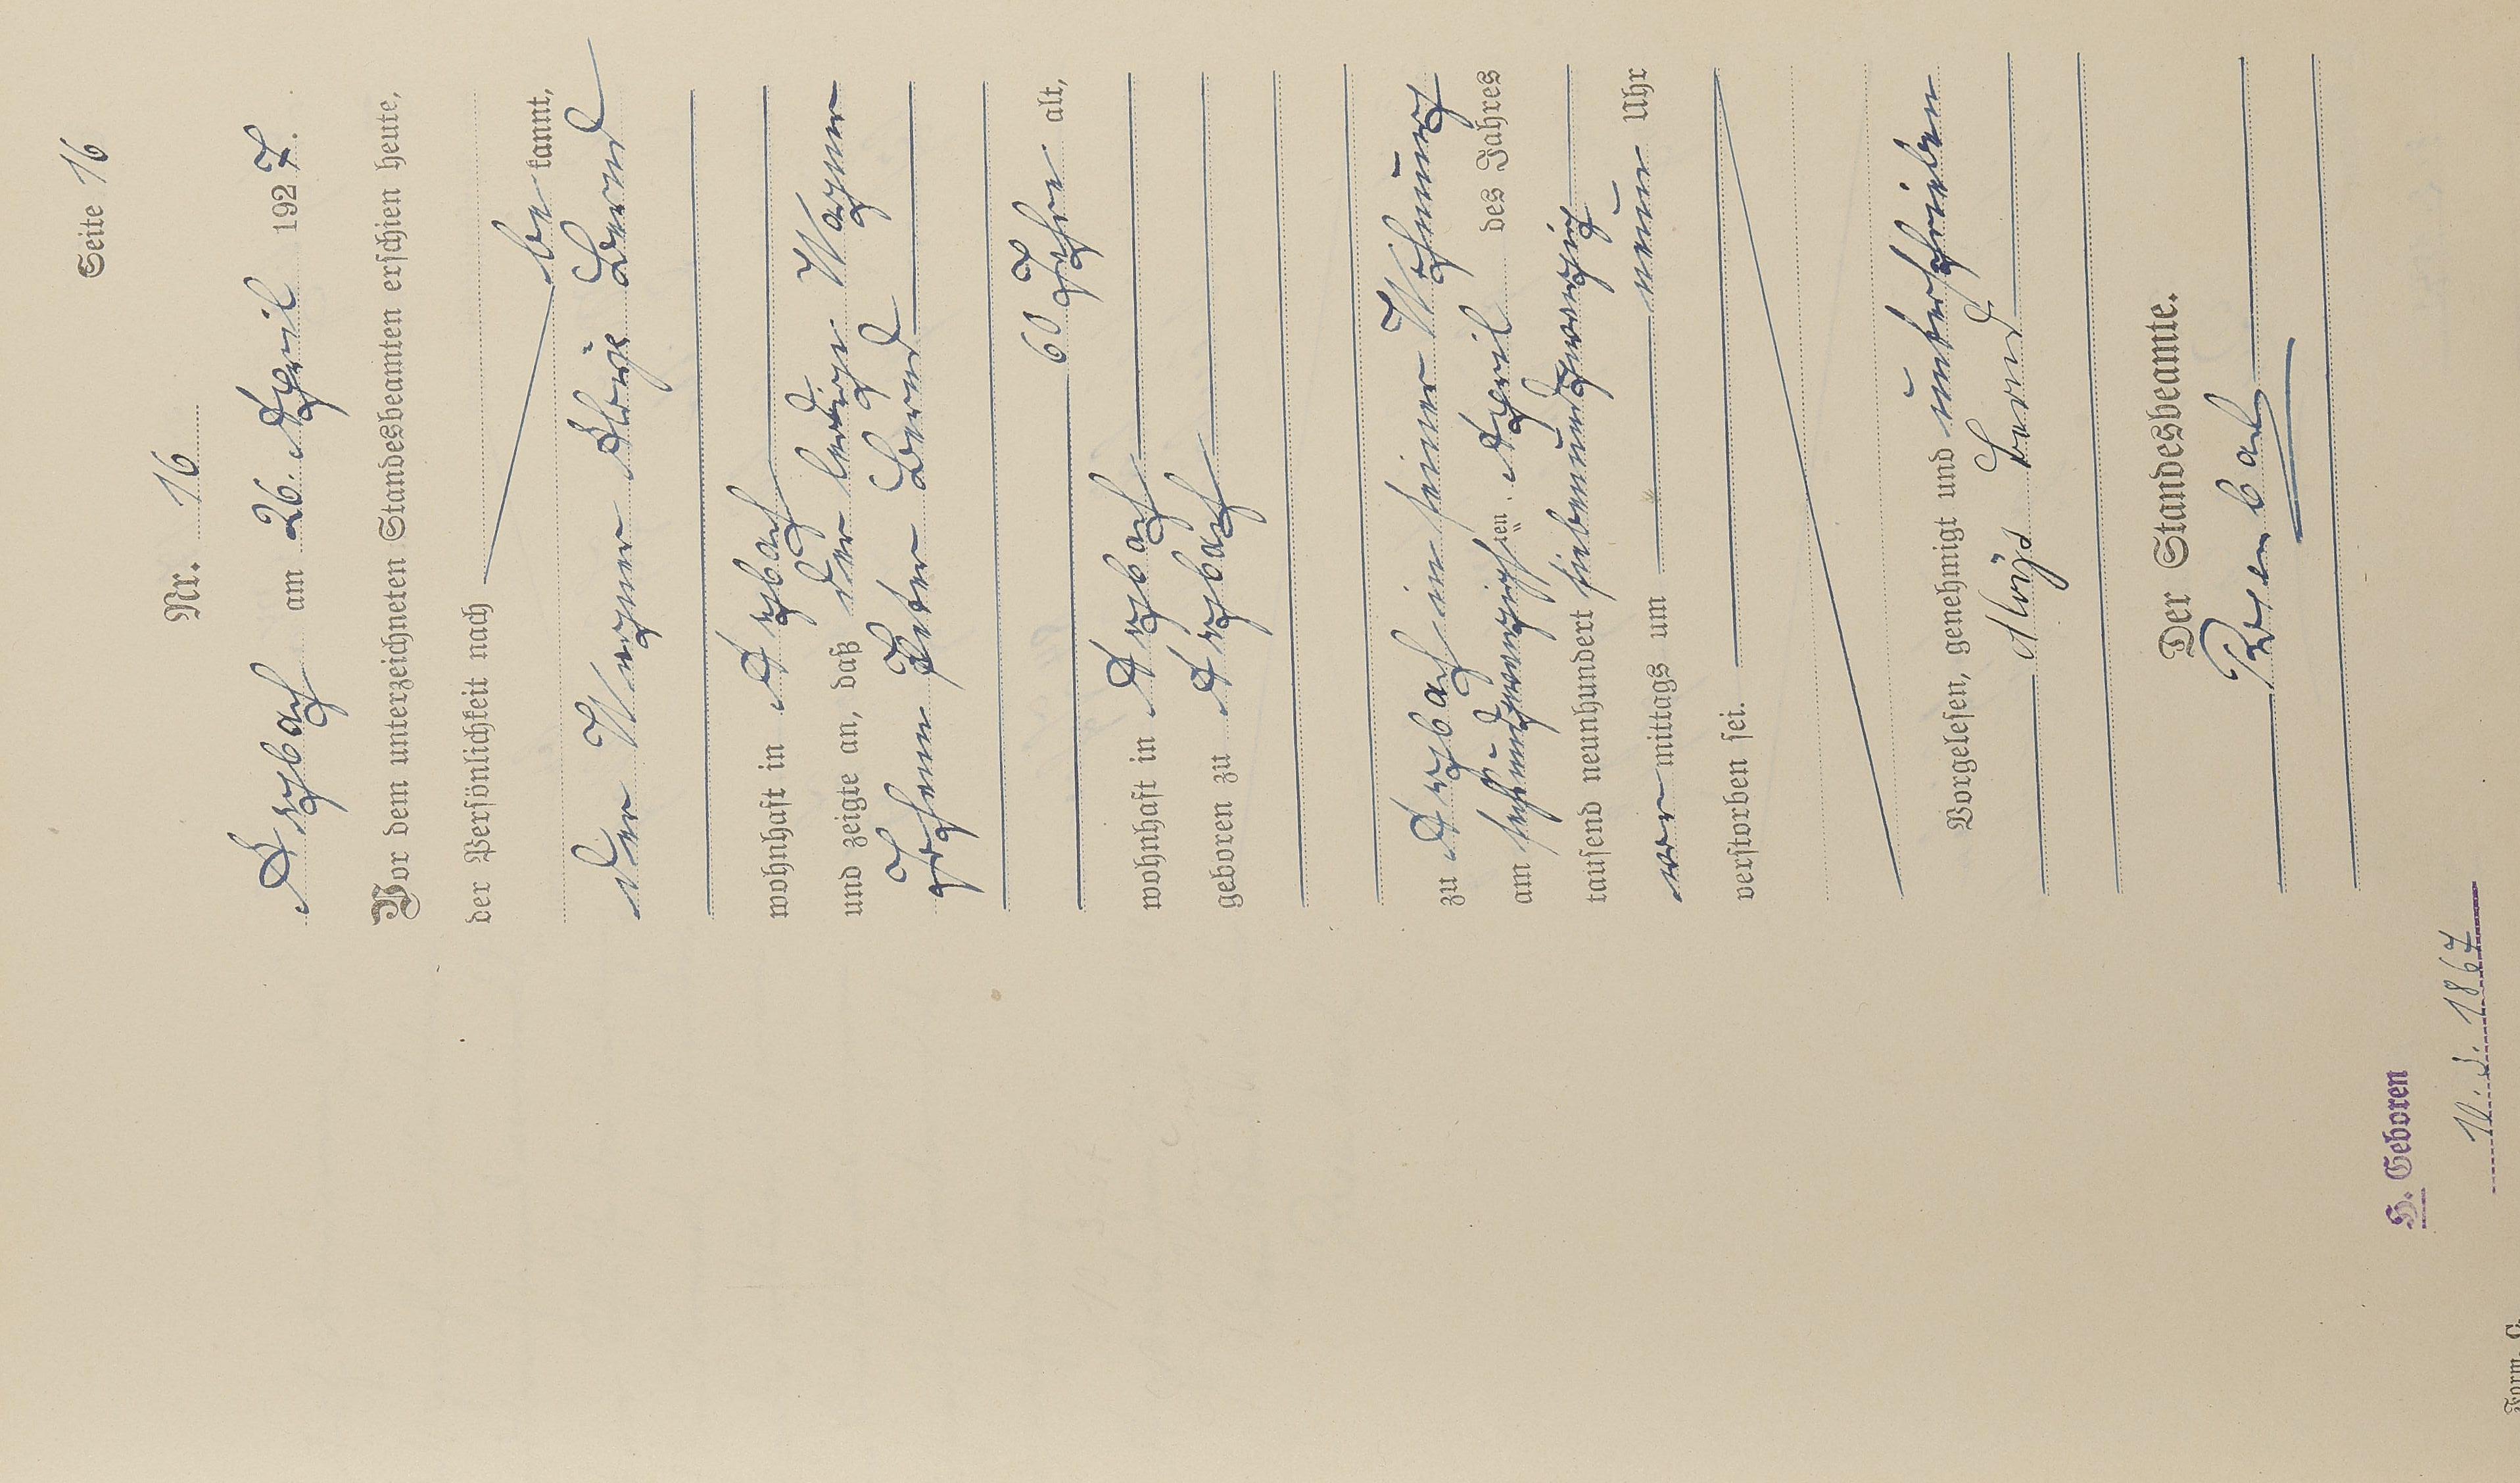 Seite 16
Nr. 16
Arzbach am 26. April 1927.
Vor dem unterzeichneten Standesbeamten erschien heute,
der Persönlichkeit nach
be kannt,
der Wagner Aloys Bernd
wohnhaft in Arzbach
und zeigte an, daß der ledige Wagner
Johann Peter Bernd
60 Jahre alt,
wohnhaft in Arzbach
geboren zu Arzbach
zu Arzbach in seiner Wohnung
am sechsundzwanzigsten April des Jahres
tausend neunhundert siebenundzwanzig
vor mittags um neun Uhr
verstorben sei.
Vorgelesen, genehmigt und unterschrieben
Aloys Bernd
Der Standesbeamte.
Geboren
1867
Form. C.